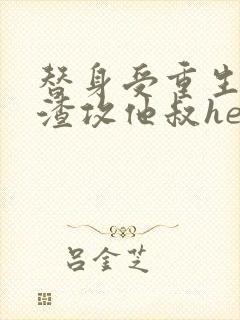 替身受重生
渣攻他叔he
吕金芝